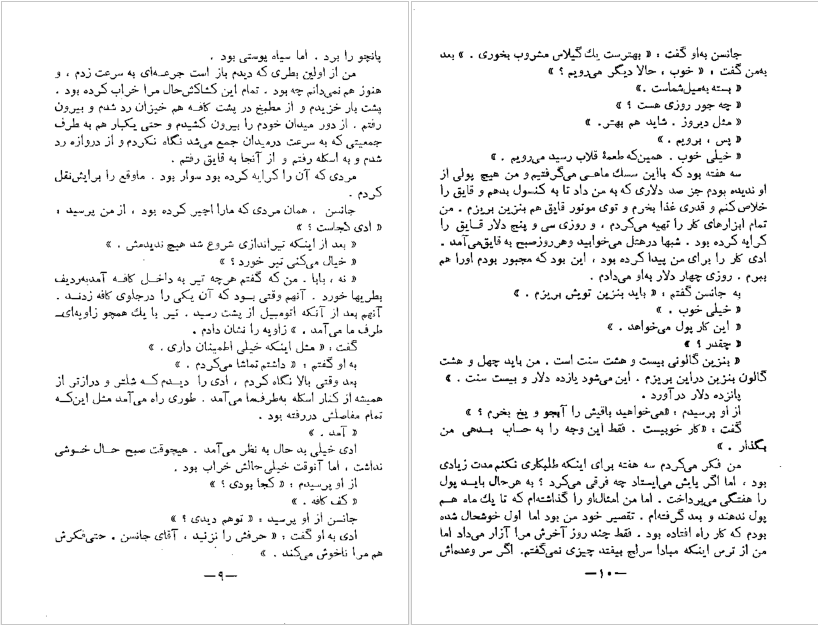 پانچو را برد . اما سیاه پوستی بود .
من از اولین بطری که دیدم باز است جرعه‌ای به سرعت زدم ، و
هنوز هم نمی‌دانم چه بود . تمام این کشاکش‌حال مرا خراب کرده بود .
پشت بار خزیدم و از مطبخ در پشت کافه هم خیزان رد شدم و بیرون
رفتم . از دور میدان خودم را بیرون کشیدم و حتی یکبار هم به طرف
جمعیتی که به سرعت درمیدان جمع می‌شد نگاه نکردم و از دروازه رد
شدم و به اسکله رفتم و از آنجا به قایق رفتم .
مردی که آن را کرایه کرده بود سوار بود . ماوقع را برایش‌نقل
کردم .
جانسن ، همان مردی که مارا اجیر کرده بود ، از من پرسید :
« ادی کجاست ؟ »
« بعد از اینکه تیراندازی شروع شد هیچ ندیدمش . »
« خیال می‌کنی تیر خورد ؟ »
« نه ، بابا . من که گفتم هرچه تیر به داخل کافه آمدبه‌ردیف
بطریها خورد . آنهم وقتی بود که آن یکی را درجلوی کافه زدند .
آنهم بعد از آنکه اتومبیل از پشت رسید . تیر با یك همچو زاویه‌ای
طرف ما می‌آمد . » زاویه را نشان دادم .
گفت : « مثل اینکه خیلی اطمینان داری . »
به او گفتم : « داشتم تماشا می‌کردم . »
بعد وقتی بالا نگاه کردم ، ادی را دیدم که شلتر و درازتر از
همیشه از کنار اسکله به‌طرف‌ما می‌آمد . طوری راه می‌آمد مثل این‌که
تمام مفاصلش دررفته بود .
« آمد . »
ادی خیلی بد حال به نظر می‌آمد . هیچوقت صبح حال خوشی
نداشت ، اما آنوقت خیلی حالش خراب بود .
از او پرسیدم : « کجا بودی ؟ »
« کف کافه . »
جانسن از او پرسید : « توهم دیدی ؟ »
ادی به او گفت : « حرفش را نزنید ، آقای جانسن . حتی‌فکرش
هم مرا ناخوش می‌کند . »
—۹—
جانسن به‌او گفت : « بهترست یك گیلاس مشروب بخوری . » بعد
به‌من گفت : « خوب ، حالا دیگر می‌رویم ؟ »
« بسته به‌میل‌شماست .»
« چه جور روزی هست ؟ »
« مثل دیروز . شاید هم بهتر. »
« پس ، برویم . »
« خیلی خوب . همین‌که طعمهٔ قلاب رسید می‌رویم . »
سه هفته بود که بااین سسك ماهی می‌گرفتیم و من هیچ پولی از
او ندیده بودم جز صد دلاری که به من داد تا به کنسول بدهم و قایق را
خلاص‌کنم و قدری غذا بخرم و توی موتور قایق هم بنزین بریزم . من
تمام ابزارهای کار را تهیه می‌کردم ، و روزی سی و پنج دلار قایق را
کرایه کرده بود . شبها درهتل می‌خوابید وهرروزصبح به قایق‌می‌آمد .
ادی کار را برای من پیدا کرده بود ، این بود که مجبور بودم اورا هم
ببرم . روزی چهار دلار به‌او می‌دادم .
به جانسن گفتم : « باید بنزین تویش بریزم . »
« خیلی خوب . »
« این کار پول می‌خواهد . »
« چقدر ؟ »
« بنزین گالونی بیست و هشت سنت است . من باید چهل و هشت
گالون بنزین دراین بریزم . این می‌شود یازده دلار و بیست سنت . »
پانزده دلار درآورد .
از او پرسیدم : «می‌خواهید باقیش را آبجو و یخ بخرم ؟ »
گفت : «کار خوبیست . فقط این وجه را به حساب بدهی من
بگذار . »
من فکر می‌کردم سه هفته برای اینکه طلبکاری نکنم‌مدت زیادی
بود ، اما اگر پایش می‌ایستاد چه فرقی می‌کرد ؟ به هرحال باید پول
را هفتگی می‌پرداخت . اما من امثال‌او را گذاشته‌ام که تا یك ماه هم
پول ندهند و بعد گرفته‌ام . تقصیر خود من بود اما اول خوشحال شده
بودم که کار راه افتاده بود . فقط چند روز آخرش مرا آزار می‌داد اما
من از ترس اینکه مبادا سرلج بیفتد چیزی نمی‌گفتم. اگر سر وعده‌اش
—۱۰—